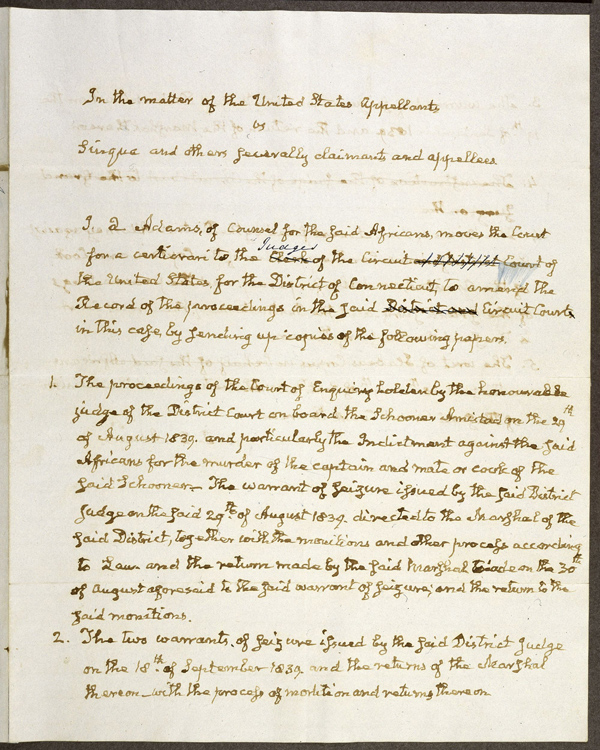 In the matter of the United States Appellants
vs
Sinqua and others severally claimants and appellees
J. Q Adams, of Counsel for the said Africans, moves the Court
for a certiorari to the Clerk Judges of the Circuit Court of
the United States, for the District of Connecticut, to amend the
Record of the proceedings in the said District and Circuit Courts
in this case, by sending up copies of the following papers.
1. The proceedings of the Court of Enquiry holden by the honourable
judge of the District Court on board the Schooner Amistad on the 29th
of August 1839. and particularly the Indictment against the said
Africans for the murder of the captain and mate or cook of the
said Schooner— The warrant of seizure issued by the said District
Judge on the said 29th of August 1839. directed to the Marshal of the
said District, together with the monitions and other process according
to Law and the return made by the said Marshal on the 30th
of August aforesaid to the said warrant of seizure, and the return to the
said monitions.
2. The two warrants of seizure issued by the said District Judge
on the 18th of September 1839. and the returns of the Marshal
thereon—with the process of monition and returns thereon